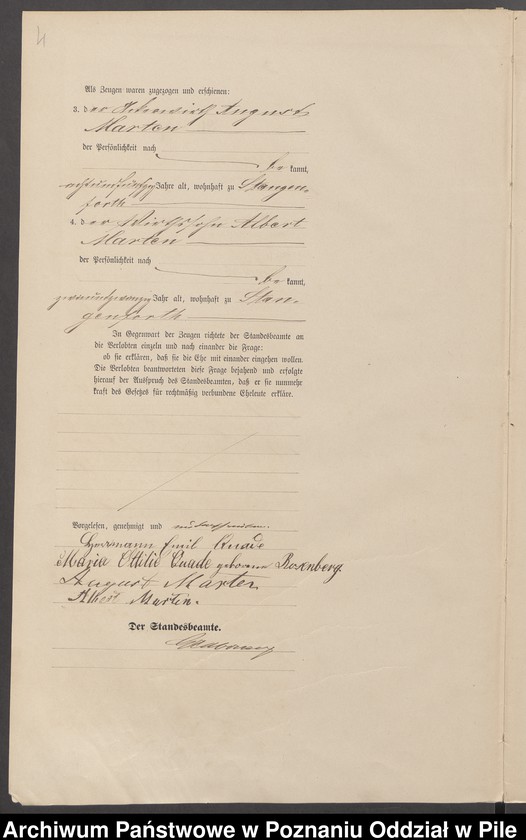 4
Als Zeugen waren zugezogen und erschienen:
3. der August
Marten
der Persönlichkeit nach
be kannt,
achtundfünfzig Jahre alt, wohnhaft zu Stangen-
forth
4. der Wirthssohn Albert
Marten
der Persönlichkeit nach
be kannt,
zweiundzwanzig Jahr alt, wohnhaft zu Stan-
genforth
In Gegenwart der Zeugen richtete der Standesbeamte an
die Verlobten einzeln und nach einander die Frage:
ob sie erklären, daß sie die Ehe mit einander eingehen wollen.
Die Verlobten beantworteten diese Frage bejahend und erfolgte
hierauf der Ausspruch des Standesbeamten, daß er sie nunmehr
kraft des Gesetzes für rechtmäßig verbundene Eheleute erkläre.
Vorgelesen, genehmigt und unterschrieben.
Herrmann Emil Quade
Maria Ottilie Quade geborene Rosenberg
August Marten
Albert Marten.
Der Standesbeamte.
Archiwum Państwowe w Poznaniu Oddział w Pile